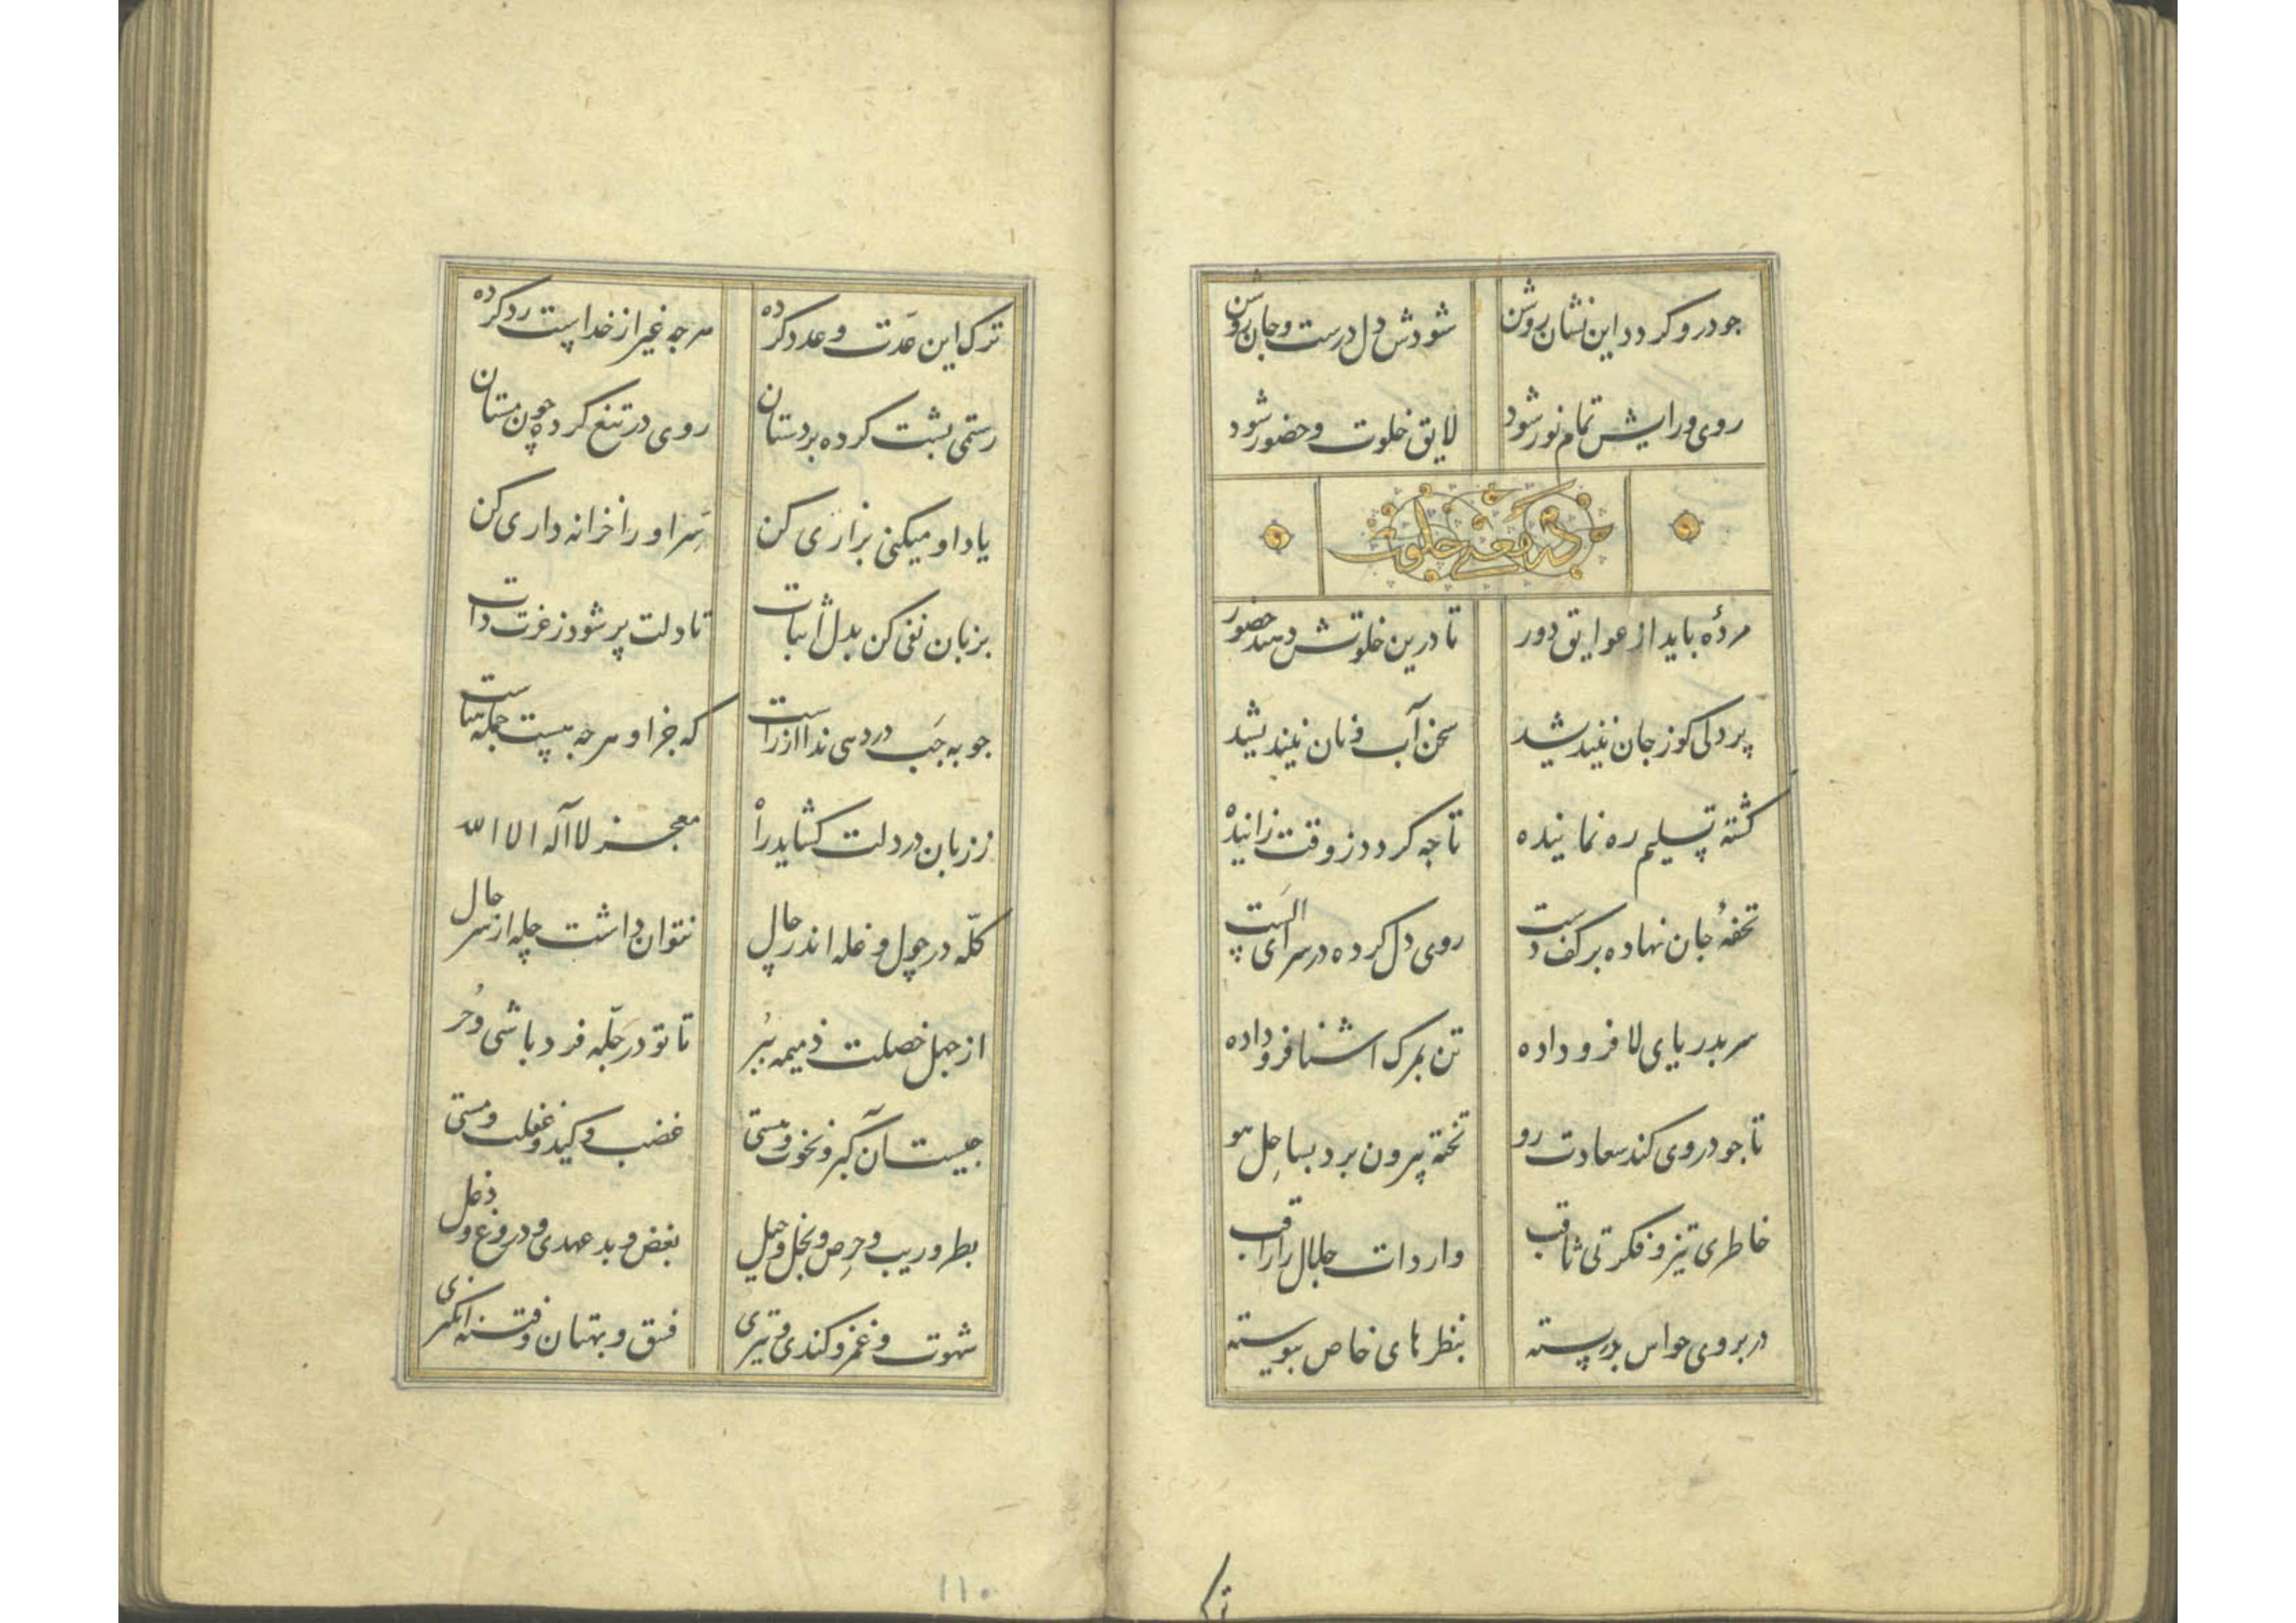 جو درو کردد این نشان روشن شودش دل درست و جان روشن
روی و رایش تمام نور شود لایق خلوت و حضور شود
در معنی خلوت
مردهٔ باید از عوایق دور تا درین خلوتش دهند حضور
پر دلی کو ز جان نیندیشد سخن آب و نان نیندیشد
کشته تسلیم ره نماینده تا جه کردد ز وقت زاینده
تحفهٔ جان نهاده بر کف دست روی دل کرده در سرای الست
سر بدریای لا فرو داده تن بمرک اشنا فرو داده
تا جو در وی کند سعادت رو تخته بیرون برد بساحل هو
خاطری تیز و فکرتی ثاقب واردات جلال را راقب
در بروی حواس بر بسته بنظرهای خاص پیوسته
تر
ترک این عدت و عدد کرده هرجه غیر از خداست رد کرده
رستمی پشت کرده بر دستان روی در تیغ کرده چون مستان
یاد او میکنی بزاری کن سر او را خزانه داری کن
بزبان نفی کن بدل اثبات تا دلت پر شود ز عزت ذات
جو به جب در دهی ندا از راست که جز او هر جه هست جمله هباست
ز زبان در دلت کشاید راه معجز لا اله الا الله
کله در چول و غله اندر چال نتوان داشت چله از سر حال
از جهل خصلت ذمیمه ببر تا تو در چله فرد باشی و حر
جیست آن کبر و نخوت و هستی غضب و کید و غفلت و مستی
بطر و ریب و حرص و بخل و حیل بغض و بد عهدی و دروغ و دغل
شهوت و غمز و کندی و تیزی فسق و بهتان و فتنه انکیزی
۱۱۰